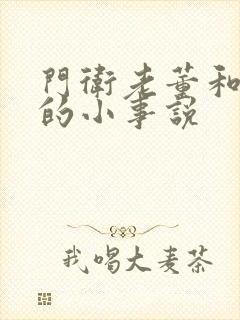 門衛老董和
的小事說
我喝大麥茶